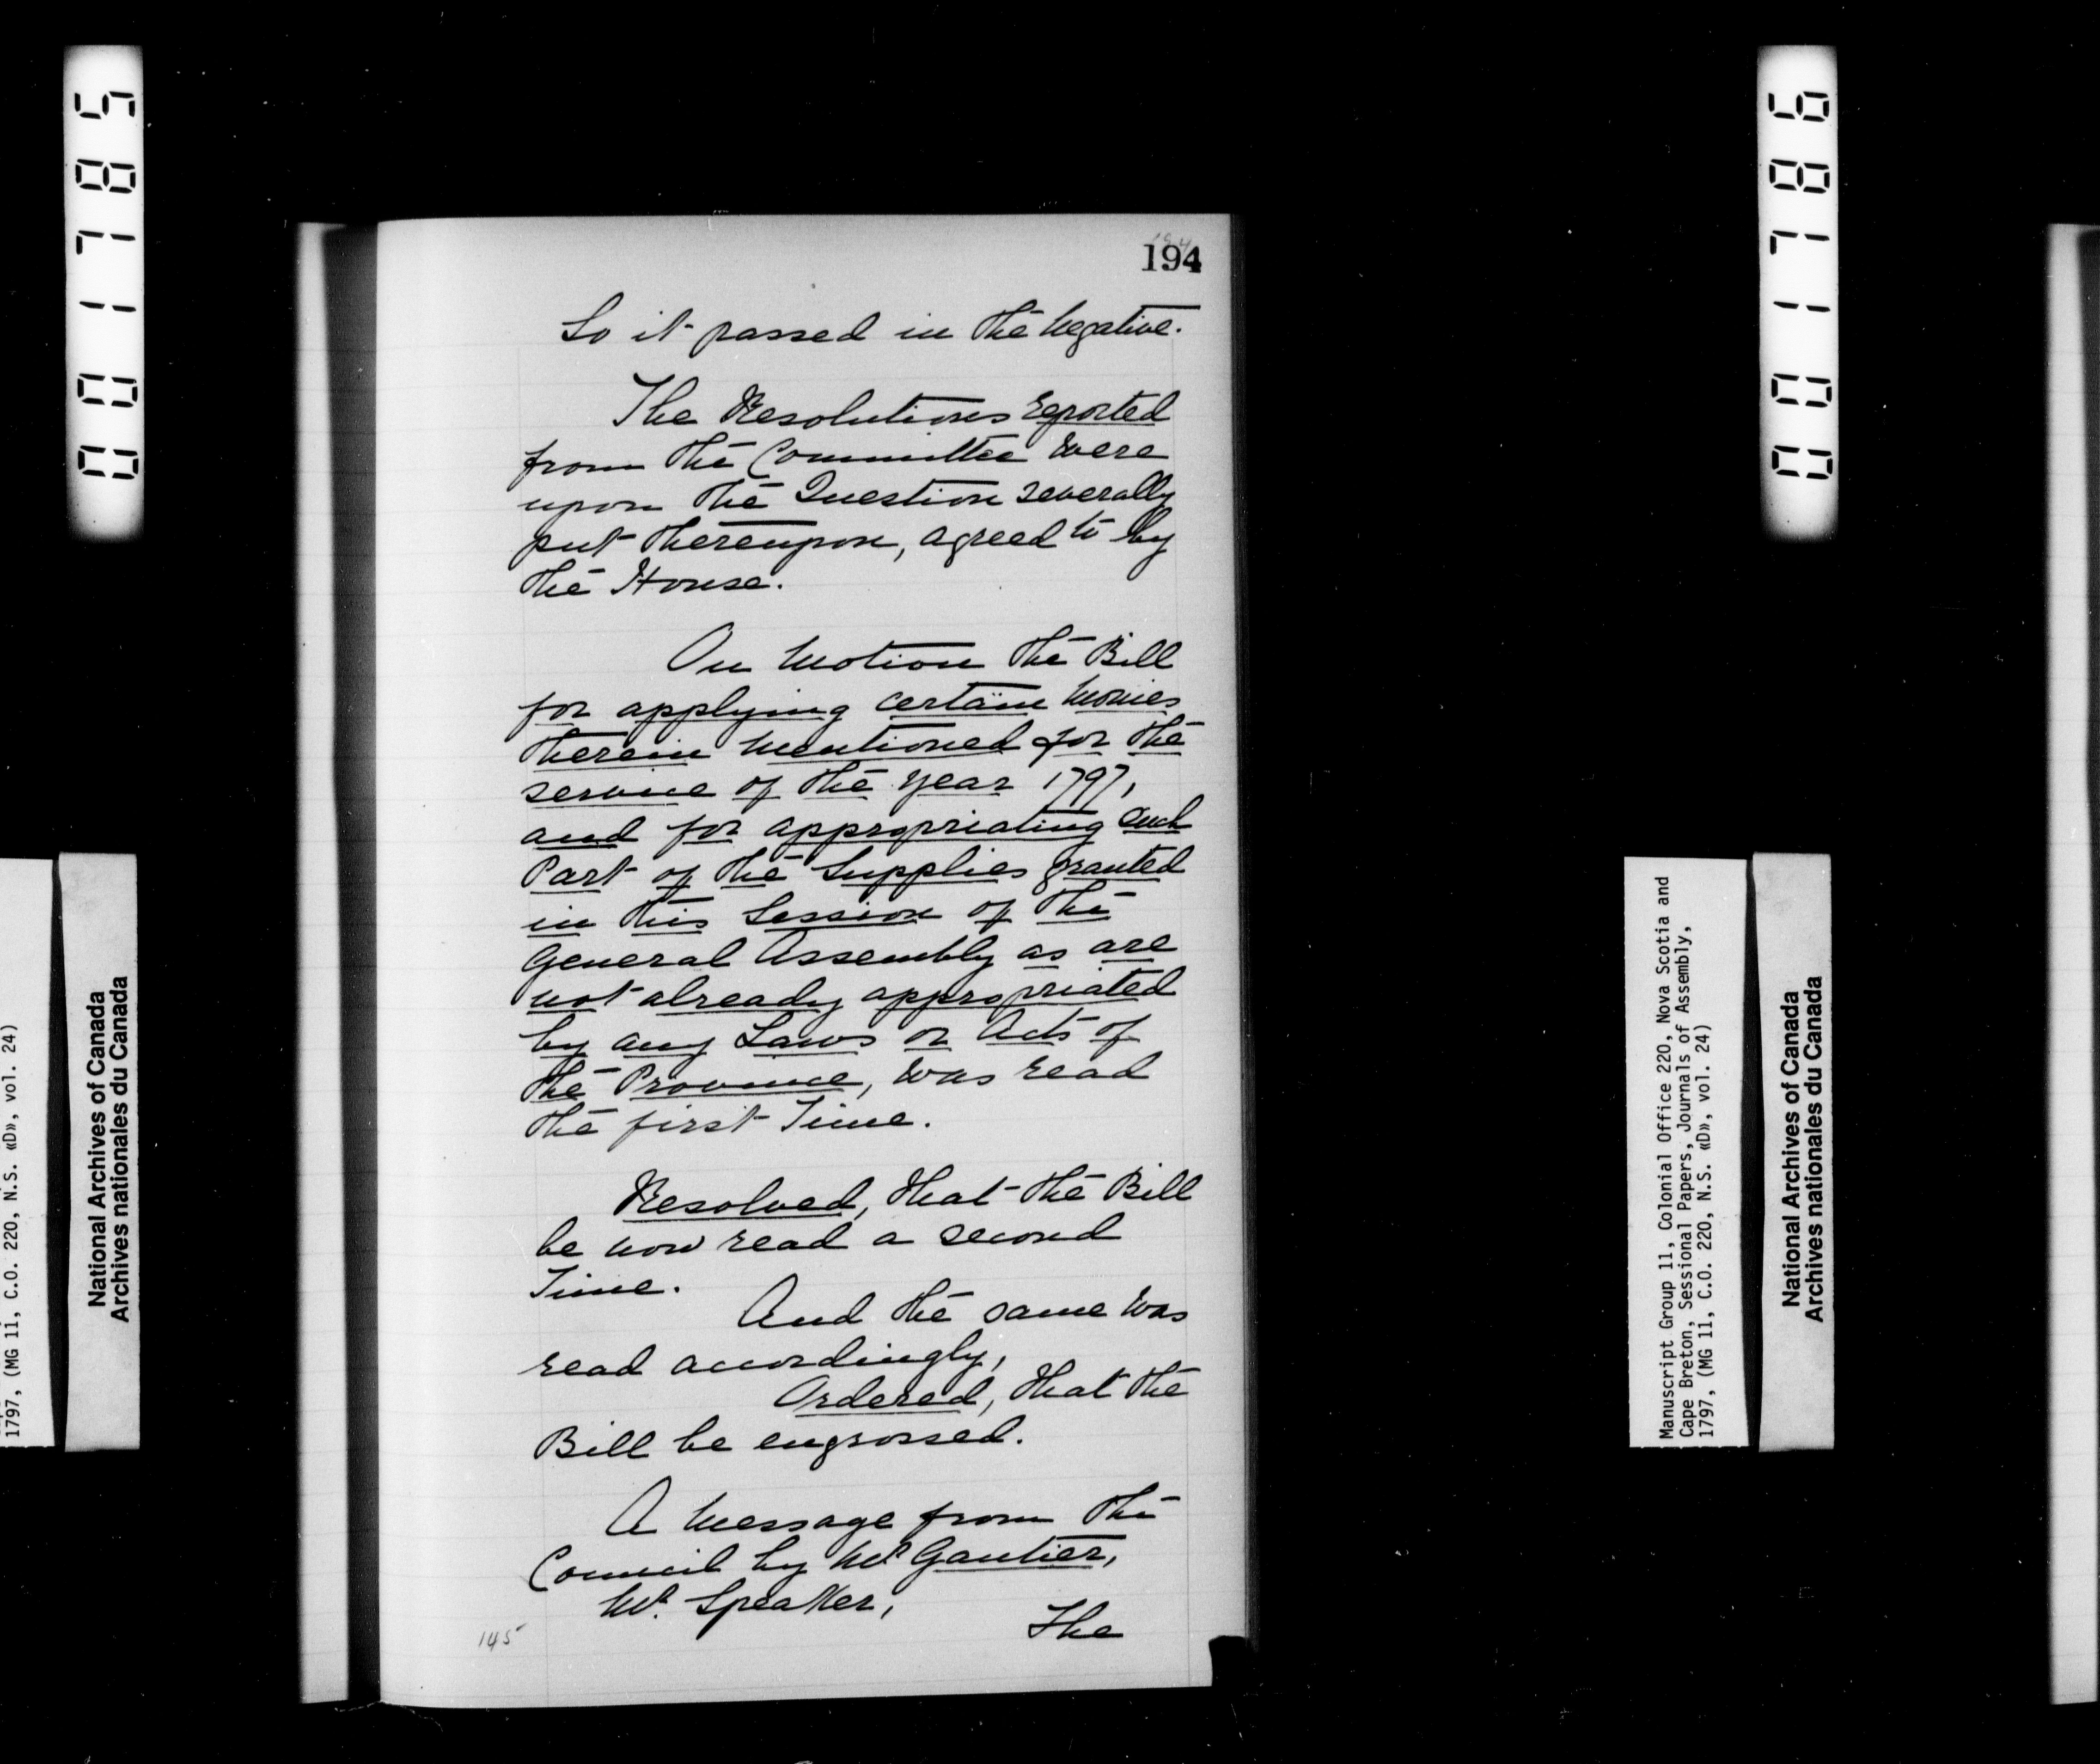 001785
National Archives of Canada
Archives nationales du Canada
1797, (MG 11, C.O. 220, N.S. «D», vol. 24)
194
194
So it passed in the Negative.
The Resolutions reported
from the Committee were
upon the Question severally
put thereupon, agreed to by
the House.
On Motion the Bill
for applying certain Monies
therein Mentioned for the
service of the year 1797,
and for appropriating such
Part of the Supplies granted
in this Session of the
General Assembly as are
not already appropriated
by any Laws or Acts of
the Province, was read
the first Time.
Resolved, that the Bill
be now read a second
Time.
And the same was
read accordingly,
Ordered, that the
Bill be engrossed.
A Message from the
Council by Mr Gautier,
Mr. Speaker,
The
145
001786
Manuscript Group 11, Colonial Office 220, Nova Scotia and
Cape Breton, Sessional Papers, Journals of Assembly,
1797, (MG 11, C.O. 220, N.S. «D», vol. 24)
National Archives of Canada
Archives nationales du Canada